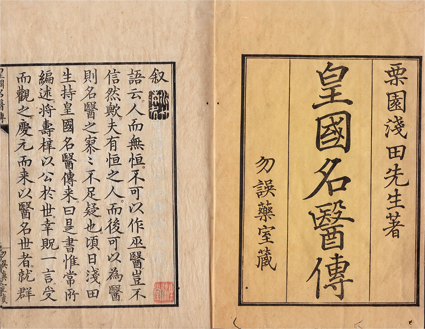 栗園淺田先生著
皇國名醫傳
勿誤藥室藏
叙
語云人而無恒不可以作巫醫豈不
信然歟夫有恒之人而後可以為醫
則名醫之寥〻不足疑也頃日淺田
生持皇國名醫傳来曰是書惟常所
編述将壽梓以公於世幸賜一言受
而觀之慶元而来以醫名世者就群
皇國名醫傳